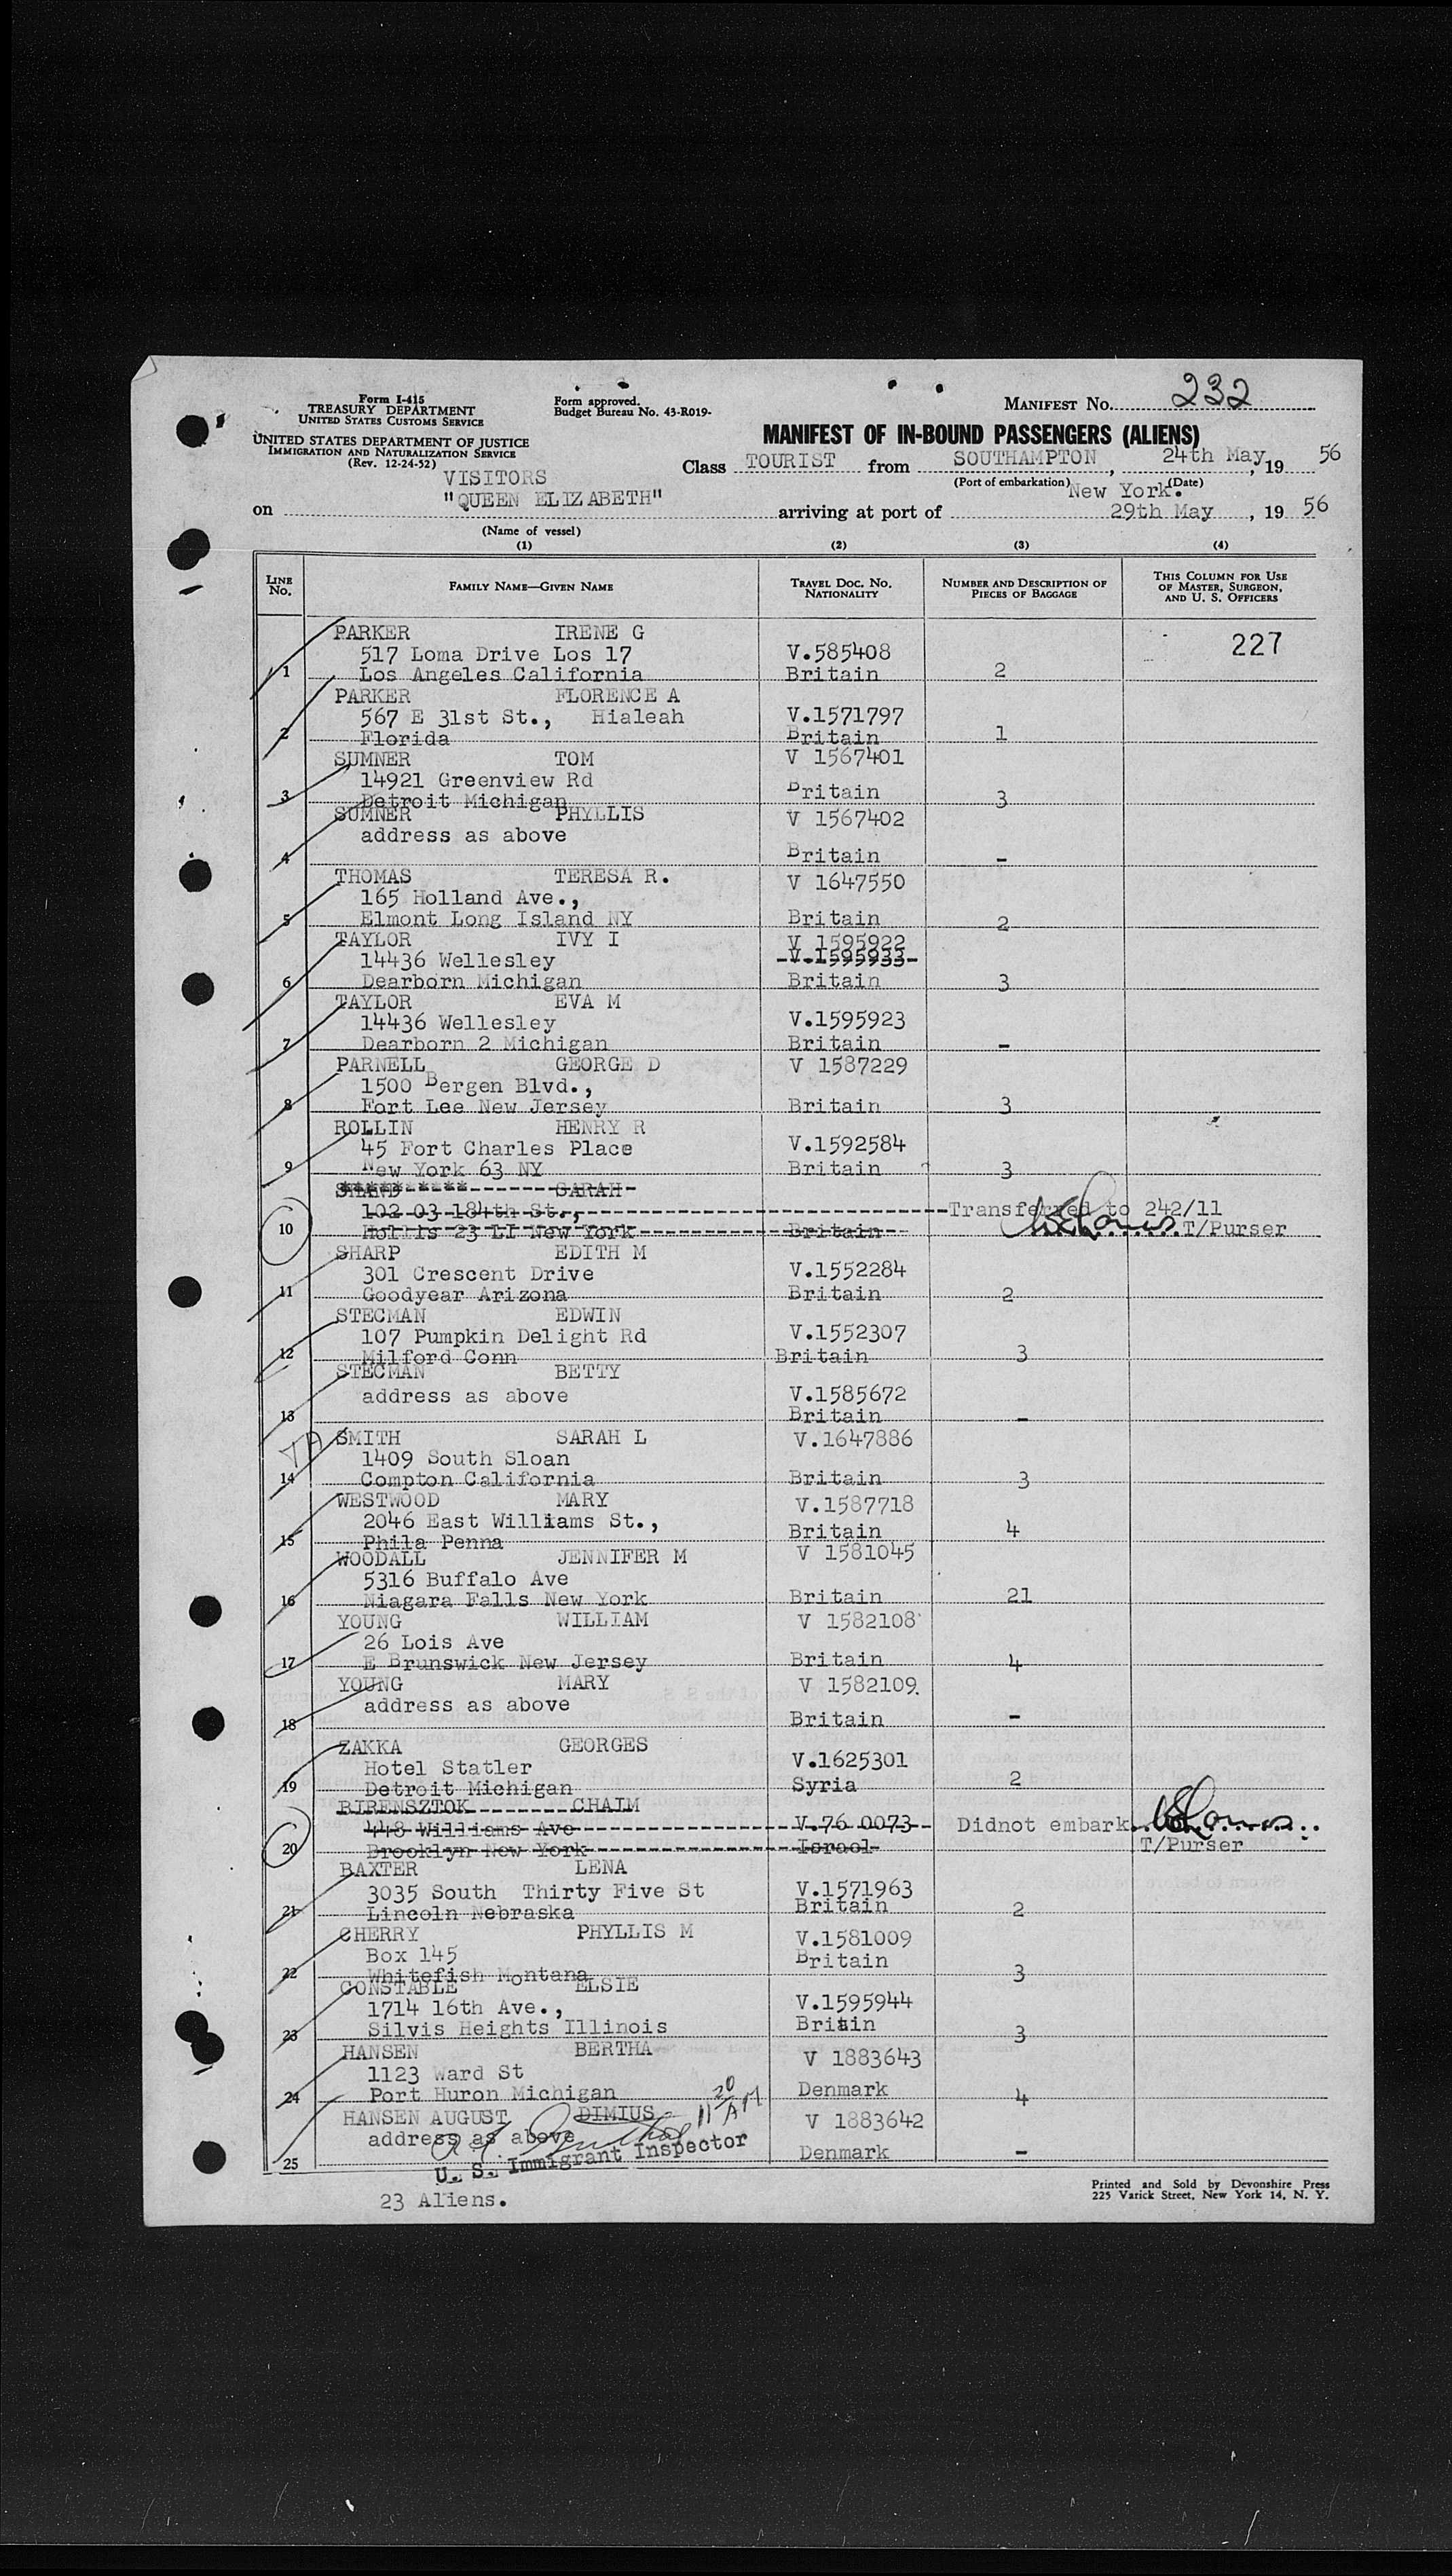 Form I-415
TREASURY DEPARTMENT
UNITED STATES CUSTOMS SERVICE
UNITED STATES DEPARTMENT OF JUSTICE
IMMIGRATION AND NATURALIZATION SERVICE
(Rev. 12-24-52)
Form approved.
Budget Bureau No. 43-R019-
MANIFEST NO. 232
MANIFEST OF IN-BOUND PASSENGERS (ALIENS)
Class TOURIST from SOUTHAMPTON, 24th May, 19 56
(Port of embarkation) (Date)
VISITORS
on "QUEEN ELIZABETH" arriving at port of New York. 29th May, 19 56
(Name of vessel)
(1) (2) (3) (4)
LINE No. FAMILY NAME—GIVEN NAME TRAVEL DOC. NO. NATIONALITY NUMBER AND DESCRIPTION OF PIECES OF BAGGAGE THIS COLUMN FOR USE OF MASTER, SURGEON, AND U. S. OFFICERS
PARKER IRENE G 227
517 Loma Drive Los 17 V.585408
1 Los Angeles California Britain 2
PARKER FLORENCE A
567 E 31st St., Hialeah V.1571797
2 Florida Britain 1
SUMNER TOM V 1567401
14921 Greenview Rd
3 Detroit Michigan Britain 3
SUMNER PHYLLIS V 1567402
address as above
4 Britain -
THOMAS TERESA R. V 1647550
165 Holland Ave.,
5 Elmont Long Island NY Britain 2
TAYLOR IVY I V 1595922
14436 Wellesley V.1595933
6 Dearborn Michigan Britain 3
TAYLOR EVA M
14436 Wellesley V.1595923
7 Dearborn 2 Michigan Britain -
PARNELL GEORGE D V 1587229
1500 Bergen Blvd.,
8 Fort Lee New Jersey Britain 3
ROLLIN HENRY R
45 Fort Charles Place V.1592584
9 New York 63 NY Britain 3
SARAH
102 03 184th St., Transferred to 242/11
10 Hollis 23 LI New York Britain T/Purser
SHARP EDITH M
301 Crescent Drive V.1552284
11 Goodyear Arizona Britain 2
STECMAN EDWIN
107 Pumpkin Delight Rd V.1552307
12 Milford Conn Britain 3
STECMAN BETTY
address as above V.1585672
13 Britain -
SMITH SARAH L V.1647886
1409 South Sloan
14 Compton California Britain 3
WESTWOOD MARY V.1587718
2046 East Williams St.,
15 Phila Penna Britain 4
WOODALL JENNIFER M V 1581045
5316 Buffalo Ave
16 Niagara Falls New York Britain 21
YOUNG WILLIAM V 1582108
26 Lois Ave
17 E Brunswick New Jersey Britain 4
YOUNG MARY V 1582109.
address as above
18 Britain -
ZAKKA GEORGES
Hotel Statler V.1625301
19 Detroit Michigan Syria 2
BIRENSZTOK CHAIM
448 Williams Ave V 76 0073 Didnot embark
20 Brooklyn New York Israel T/Purser
BAXTER LENA
3035 South Thirty Five St V.1571963
21 Lincoln Nebraska Britain 2
CHERRY PHYLLIS M V.1581009
Box 145
22 Whitefish Montana Britain 3
CONSTABLE ELSIE
1714 16th Ave., V.1595944
23 Silvis Heights Illinois Britain 3
HANSEN BERTHA V 1883643
1123 Ward St
24 Port Huron Michigan Denmark 4
HANSEN AUGUST DIMIUS 11 20 AM V 1883642
address as above
25 Denmark -
U. S. Immigrant Inspector
23 Aliens.
Printed and Sold by Devonshire Press
225 Varick Street, New York 14, N. Y.